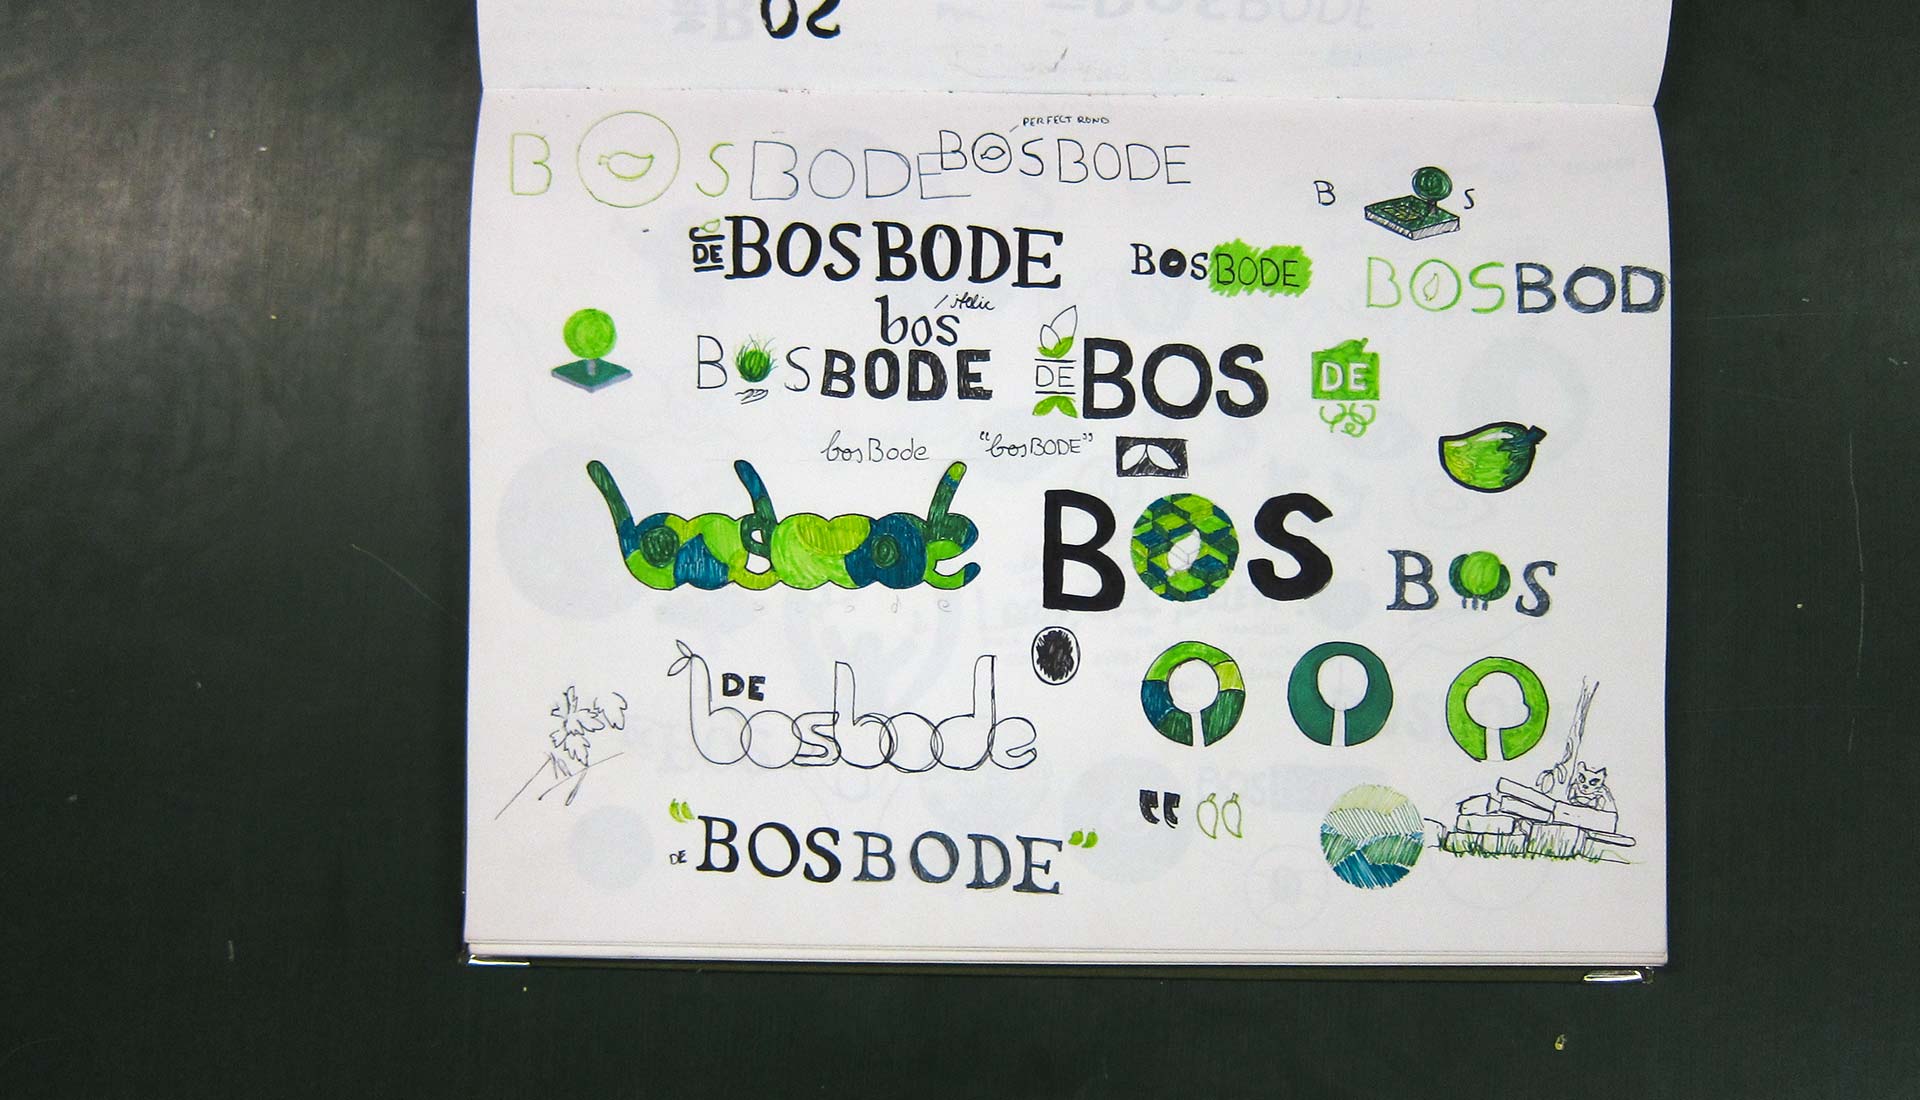 BOSBODE
PERFECT ROND
BOSBODE
B S
DE BOSBODE
BOSBODE
BOSBOD
italic
bos
BOSBODE
DE BOS
DE
bosBode
"bosBODE"
bosbode
BOS
BOS
DE
bosbode
"
DE "BOSBODE"